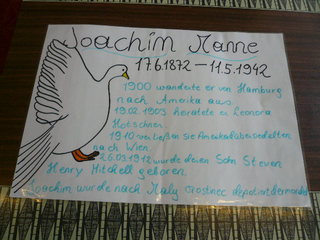 Joachim Manne
17.6.1872 – 11.5.1942
1900 wanderte er von Hamburg
nach Amerika aus.
19.02.1903 heiratete er Leonora
Hotschner.
1910 verließen sie Amerika übersiedelten
nach Wien.
26.03.1912 wurde deren Sohn Steven
Henry Mitchell geboren.
Joachim wurde nach Maly Trostinec deportiert ermordet